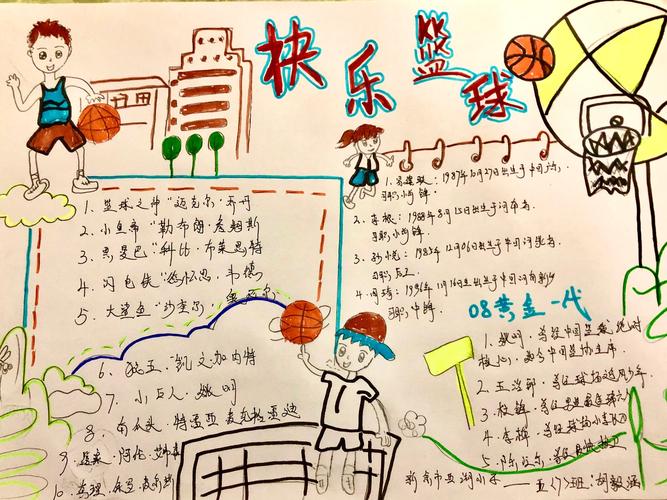 快乐篮球
1、篮球之神"迈克尔·乔丹
2、小皇帝"勒布朗·詹姆斯
3、黑曼巴"科比·布莱恩特
4、闪电侠"德怀恩·韦德
5、大鲨鱼"沙奎尔·奥尼尔
6、狼王"凯文加内特
7、小巨人 姚明
8、特雷西·麦克格雷迪
9、阿伦·艾弗森
10、
1. 易建联：1987年10月27日出生于中国广东，
司职小前锋.
2、李根：1988年8月15日出生于河南省
司职小前锋.
3、孙悦：1985年11月06日出生于中国河北省
司职后卫
4、周琦：1996年1月16日出生于中国河南新乡
司职中锋.
08黄金一代
1、姚明，曾经中国篮球绝对
核心，如今中国篮协主席
2、王治郅，曾经球场追风少年.
3、
4、李楠，曾经球场
5、陈江华，曾经
新余市西湖小学——五(7)班：胡毅涵